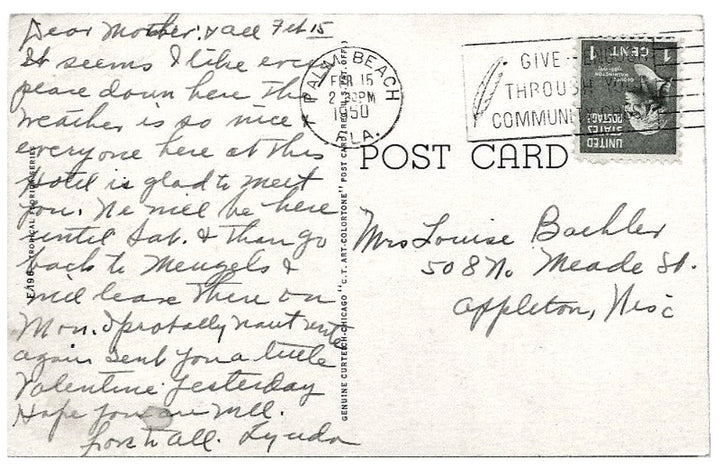 Dear Mother & all Feb 15
It seems I like every
place down here the
weather is so nice &
everyone here at this
Hotel is glad to meet
you. We will be here
until Sat. & than go
back to Mengels &
will leave there on
Mon. I probally wont write
again sent you a little
Valentine yesterday
Hope you are well.
Love to all. Lynda
E-196—TROPICAL FLORIDA SERIES
GENUINE CURTEICH-CHICAGO "C.T. ART-COLORTONE" POST CARD (REG. U.S. PAT. OFF.)
PALM BEACH
FEB 15
2 30 PM
1950
FLA.
GIVE
THROUGH YOUR
COMMUNITY CHEST
1 CENT 1
UNITED
STATES
POSTAGE
POST CARD
Mrs Louise Bachler
508 N. Meade St.
Appleton, Wisc